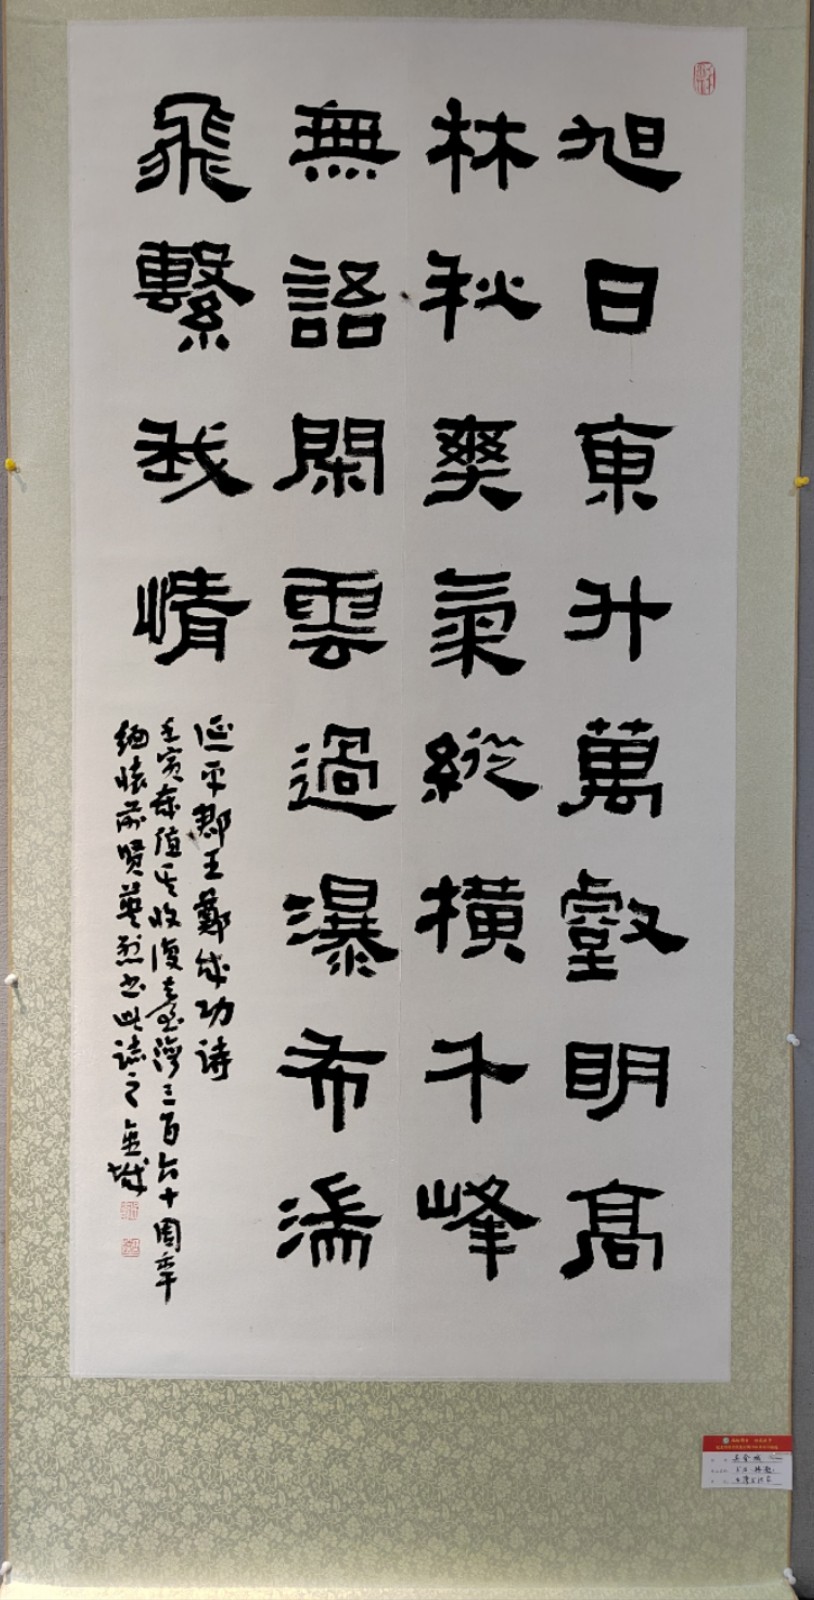 旭日東升萬壑明高
林秋爽氣縱橫千峰
無語閑雲過瀑布濺
飛繫我情
延平郡王鄭成功詩
壬寅春值其收復臺灣三百六十周年
緬懷前賢英烈書此誌之 金城